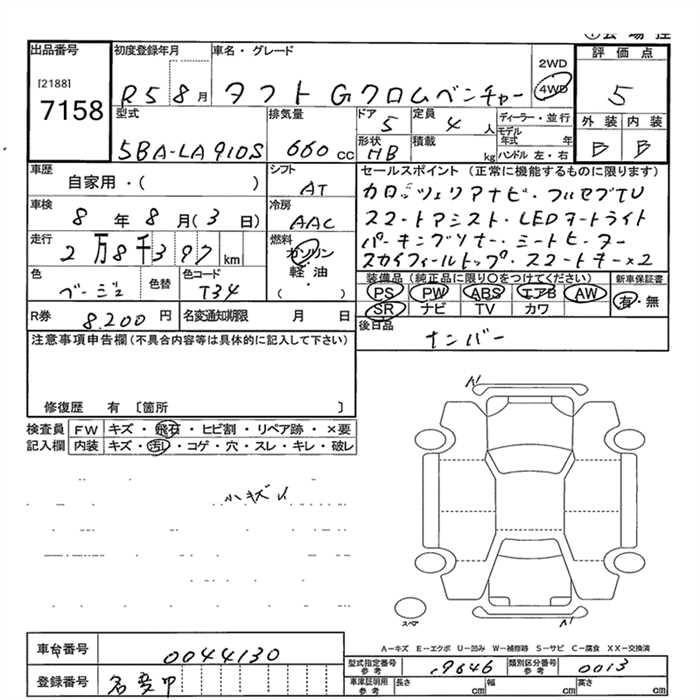 出品番号
[2188]
7158
初度登録年月
R5 8月
車名・グレード
タフト Gクロムベンチャー
2WD
4WD
評価点
5
外装 内装
B B
型式
5BA-LA910S
排気量
660 cc
ドア
5
定員
4 人
形状
HB
積載
kg
ディーラー・並行
モデル年式 年
ハンドル 左・右
車歴
自家用・( )
シフト
AT
車検
8年 8月 (3日)
冷房
AAC
走行
2万8千397 km
燃料
ガソリン
軽・油
・( )
色
ベージュ
色替
色コード
T34
R券
8,200 円
名変通知期限 月 日
セールスポイント (正常に機能するものに限ります)
カロッツェリアナビ・フルセグTV
スマートアシスト・LEDオートライト
パーキングソナー・シートヒーター
スカイフィールトップ・スマートキー×2
装備品 (純正品に限り○をつけてください)
PS PW ABS エアB AW
SR ナビ TV カワ
新車保証書
有・無
後日品
ナンバー
注意事項申告欄(不具合内容等は具体的に記入して下さい)
修復歴 有 〔箇所 〕
検査員 FW キズ・飛石・ヒビ割・リペア跡・×要
記入欄 内装 キズ・汚レ・コゲ・穴・スレ・キレ・破レ
小キズ
A1
A1
スペア
A-キズ E-エクボ U-凹み W-補修跡 S-サビ C-腐食 XX-交換済
車台番号
0044130
登録番号
名変中
型式指定番号 参考
19646
類別区分番号 参考
0013
車体証明用 参考
長さ cm
幅 cm
高さ cm